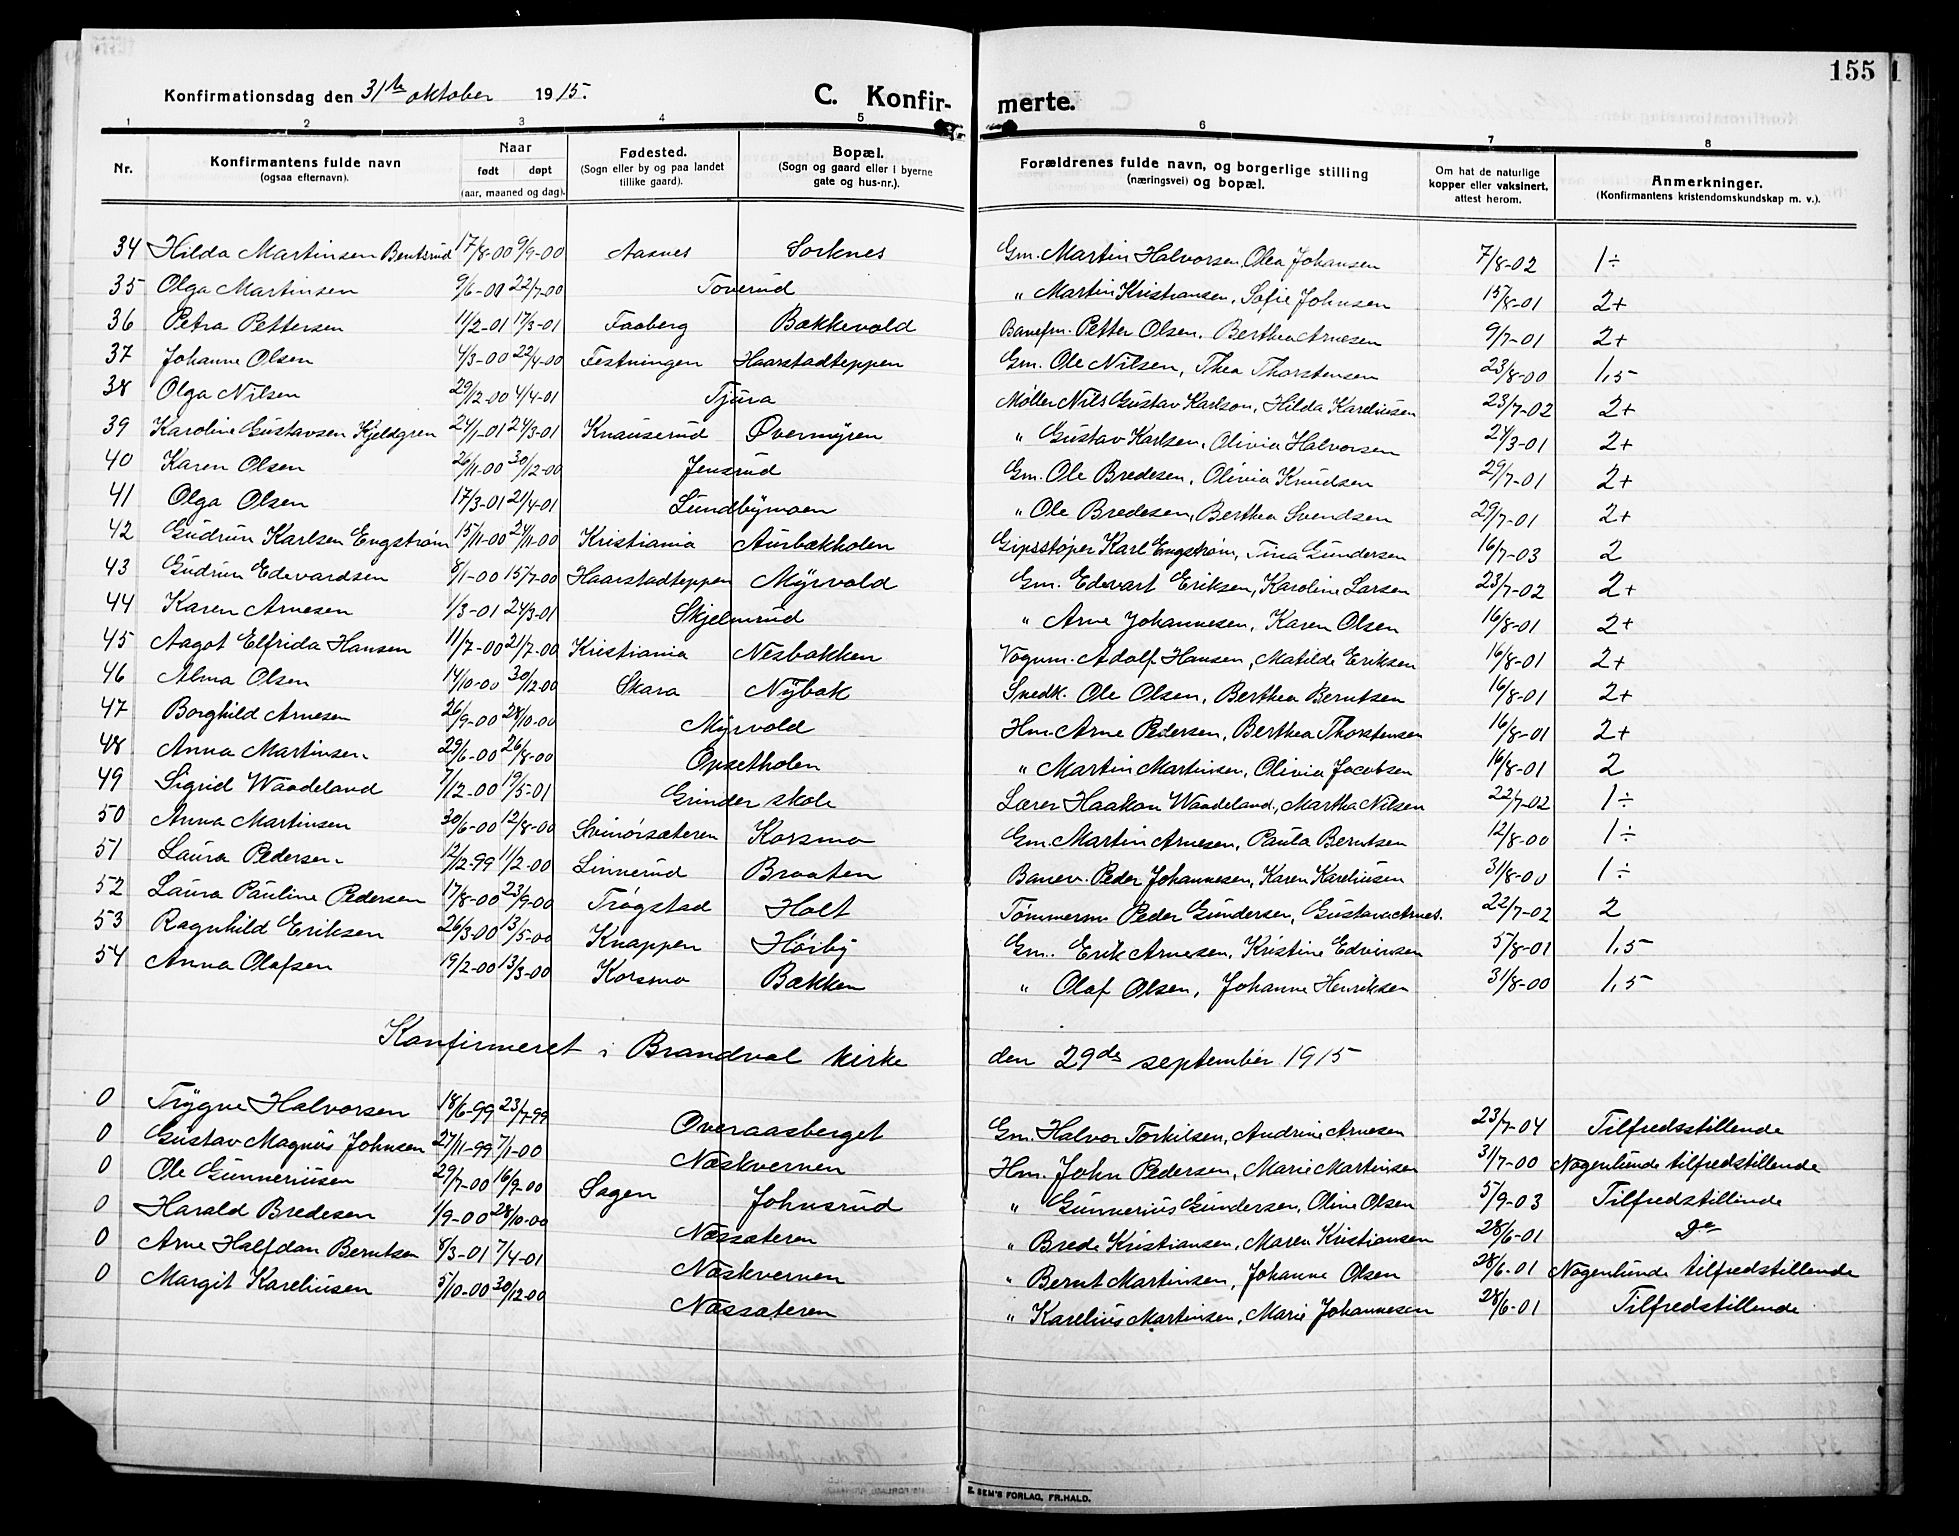 155
Konfirmationsdag den 31te oktober 1915.
C. Konfir- merte.
1 2 3 4 5 6 7 8
Nr. Konfirmantens fulde navn (ogsaa efternavn). Naar født døpt (aar, maaned og dag). Fødested. (Sogn eller by og paa landet tillike gaard). Bopæl. (Sogn og gaard eller i byerne gate og hus-nr.). Forældrenes fulde navn, og borgerlige stilling (næringsvei) og bopæl. Om hat de naturlige kopper eller vaksinert, attest herom. Anmerkninger. (Konfirmantens kristendomskundskap m. v.).
34 Hilda Martinsen Bentsrud 17/8-00 9/9-00 Aasnes Sorknes Gm. Martin Halvorsen, Olea Johansen 7/8-02 1÷
35 Olga Martinsen 9/6-00 22/7-00 Toverud " Martin Kristiansen, Sofie Johnsen 15/8-01 2+
36 Petra Pettersen 11/2-01 17/3-01 Faaberg Bækkevold Banefm. Petter Olsen, Berthea Arnesen 9/7-01 2+
37 Johanne Olsen 4/3-00 22/4-00 Festningen Haarstadteppen Gm. Ole Nilsen, Thea Thorstensen 23/8-00 1,5
38 Olga Nilsen 29/12-00 4/4-01 Tjura Møller Nils Gustav Karlson, Hilda Kareliusen 23/7-02 2+
39 Karoline Gustavsen Kjeldgren 24/1-01 24/3-01 Knauserud Overmyren " Gustav Karlsen, Olivia Halvorsen 24/3-01 2+
40 Karen Olsen 26/11-00 30/12-00 Jensrud Gm. Ole Bredesen, Olivia Knudsen 29/7-01 2+
41 Olga Olsen 17/3-01 21/4-01 Lundbymoen " Ole Bredesen, Berthea Svendsen 29/7-01 2+
42 Gudrun Karlsen Engstrøm 15/11-00 24/11-00 Kristiania Aurbækholen Gipsstøper Karl Engstrøm, Tina Gundersen 16/7-03 2
43 Gudrun Edevardsen 8/1-00 15/7-00 Haarstadteppen Myrvold Gm. Edevart Eriksen, Karoline Larsen 23/7-02 2+
44 Karen Arnesen 1/3-01 24/3-01 Skjelmrud " Arne Johannesen, Karen Olsen 16/8-01 2+
45 Aagot Elfrida Hansen 11/7-00 21/7-00 Kristiania Nesbakken Vognm. Adolf Hansen, Matilde Eriksen 16/8-01 2+
46 Alma Olsen 14/10-00 30/12-00 Skara Nybak Snedk. Ole Olsen, Berthea Berntsen 16/8-01 2+
47 Borghild Arnesen 26/9-00 28/10-00 Myrvold Hm. Arne Pedersen, Berthea Thorstensen 16/8-01 2+
48 Anna Martinsen 29/6-00 26/8-00 Opsetholen " Martin Martinsen, Olivia Jacobsen 16/8-01 2
49 Sigrid Waadeland 7/12-00 19/5-01 Grinder skole Lærer Haakon Waadeland, Martha Nilsen 22/7-02 1÷
50 Anna Martinsen 30/6-00 12/8-00 Svinørsæteren Korsmo Gm. Martin Arnesen, Paula Berntsen 12/8-00 1÷
51 Laura Pedersen 12/12-99 11/2-00 Linnerud Braaten Banev. Peder Johannesen, Karen Kareliusen 31/8-00 1÷
52 Laura Pauline Pedersen 17/8-00 23/9-00 Trøgstad Holt Tømmerm Peder Gundersen, Gustava Arnes. 22/7-02 2
53 Ragnhild Eriksen 26/3-00 13/5-00 Knappen Høiby Gm. Erik Arnesen, Kristine Edvinsen 5/8-01 1,5
54 Anna Olafsen 19/2-00 13/3-00 Korsmo Bækken " Olaf Olsen, Johanne Henriksen 31/8-00 1,5
Konfirmeret i Brandval kirke den 29de september 1915
0 Trygve Halvorsen 18/6-99 23/7-99 Overaasberget Gm. Halvor Torkilsen, Andrine Arnesen 23/7-04 Tilfredsstillende
0 Gustav Magnus Johnsen 27/11-99 7/1-00 Næskvernen Hm. John Pedersen, Marie Martinsen 31/7-00 Nogenlunde tilfredstillende
0 Ole Gunneriusen 29/7-00 16/9-00 Sagen Johnsrud " Gunnerius Gundersen, Oline Olsen 5/9-03 Tilfredstillinde
0 Harald Bredesen 1/9-00 28/10-00 Næssæteren " Brede Kristiansen, Maren Kristiansen 28/6-01 Do
0 Arne Halfdan Berntsen 8/3-01 7/4-01 Næskvernen " Bernt Martinsen, Johanne Olsen 28/6-01 Nogenlunde tilfredstillende
0 Margit Kareliusen 5/10-00 30/12-00 Næssæteren " Karelius Martinsen, Marie Johannesen 28/6-01 Tilfredstillende
E. SEM'S FORLAG, FR.HALD.